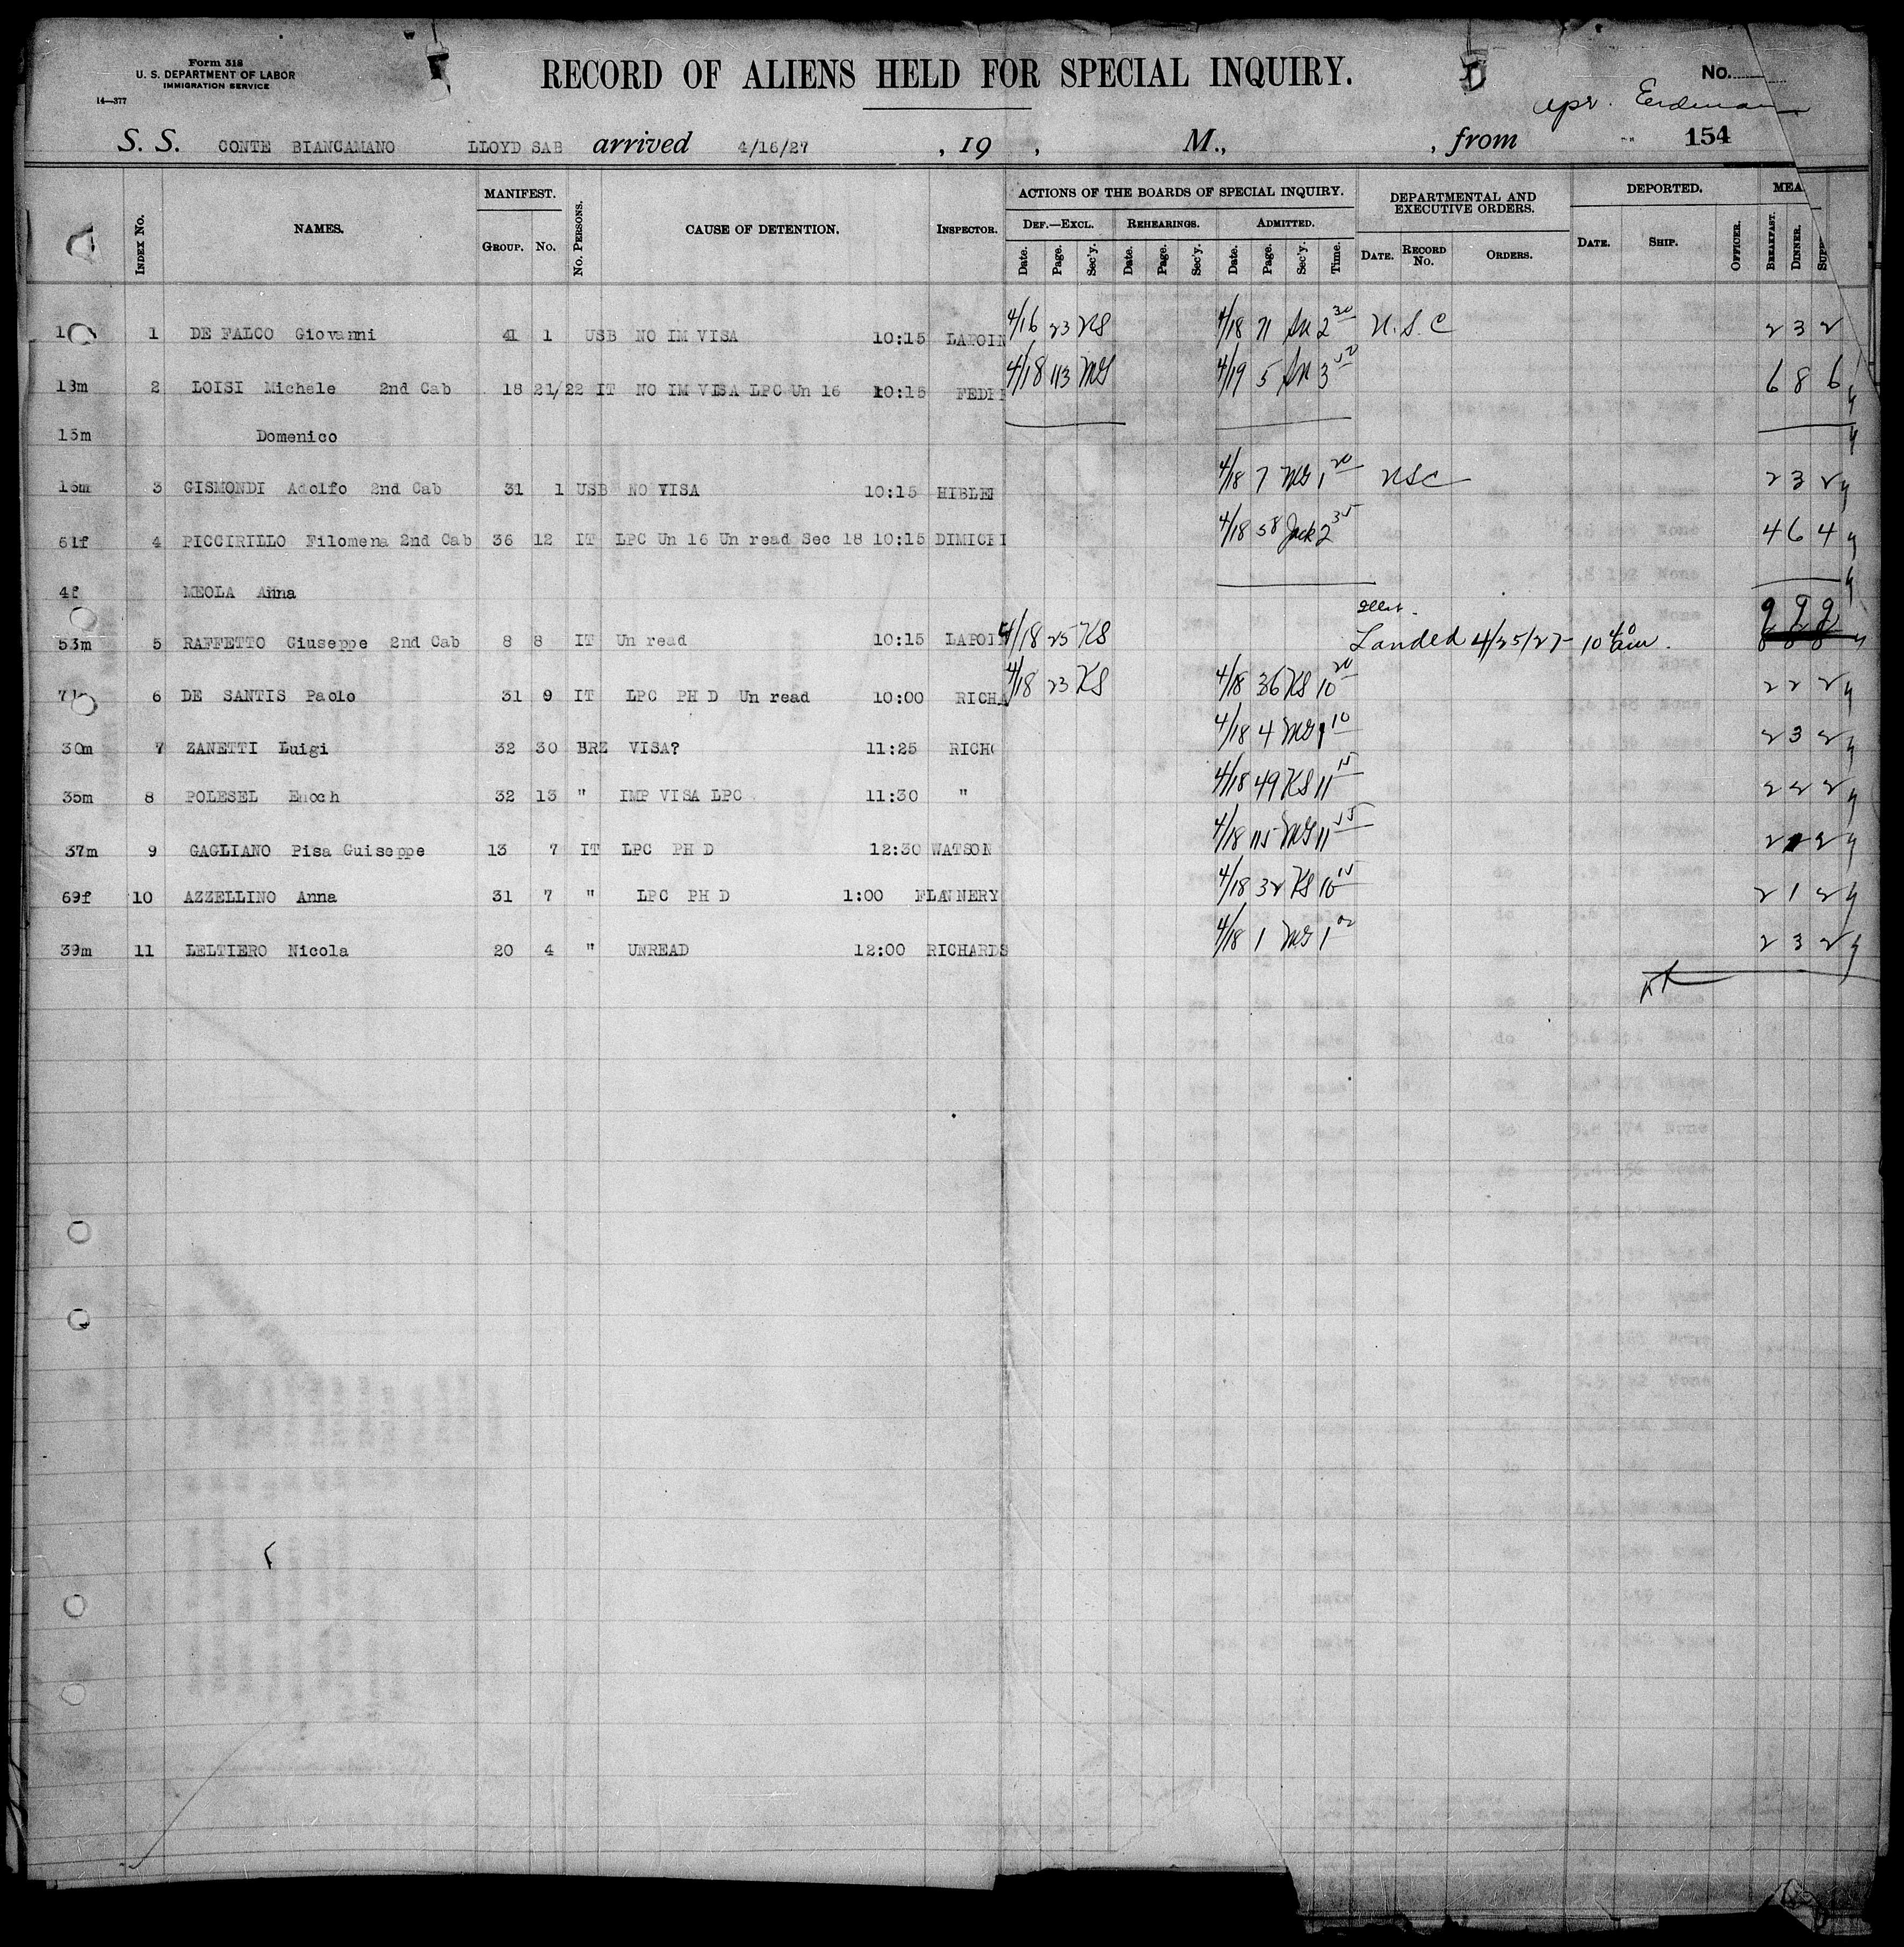 Form 318
U. S. DEPARTMENT OF LABOR
IMMIGRATION SERVICE
14—377
RECORD OF ALIENS HELD FOR SPECIAL INQUIRY.
No.
S. S. CONTE BIANCAMANO LLOYD SAB arrived 4/16/27 , 19 , M., , from 154
MANIFEST. ACTIONS OF THE BOARDS OF SPECIAL INQUIRY. DEPARTMENTAL AND EXECUTIVE ORDERS. DEPORTED. MEA
Index No. NAMES. Group. No. No. Persons. CAUSE OF DETENTION. Inspector. Def.—Excl. Rehearings. Admitted.
Date. Page. Sec'y. Date. Page. Sec'y. Date. Page. Sec'y. Time. Date. Record No. Orders. Date. Ship. Officer. Breakfast. Dinner. Supp
1 DE FALCO Giovanni 41 1 USB NO IM VISA 10:15 LAPOIN 4/16 23 KS 4/18 71 2 30 U.S.C 2 3 2
18m 2 LOISI Michele 2nd Cab 18 21/22 IT NO IM VISA LPC Un 16 10:15 FEDER 4/18 113 MG 4/19 5 3 6 8 6
13m Domenico
16m 3 GISMONDI Adolfo 2nd Cab 31 1 USB NO VISA 10:15 HIBLER 4/18 7 MG 1 20 USC 2 3 2
61f 4 PICCIRILLO Filomena 2nd Cab 36 12 IT LPC Un 16 Un read Sec 18 10:15 DIMICHI 4/18 58 Jack 2 35 4 6 4
4f MEOLA Anna
53m 5 RAFFETTO Giuseppe 2nd Cab 8 8 IT Un read 10:15 LAPOIN 4/18 25 KS Landed 4/25/27 - 10 40 am. 9 9 9
6 DE SANTIS Paolo 31 9 IT LPC PH D Un read 10:00 RICHA 4/18 23 KS 4/18 36 KS 10 20 2 2 2
30m 7 ZANETTI Luigi 32 30 BRZ VISA? 11:25 RICH 4/18 4 MG 1 10 2 3 2
35m 8 POLESEL Enoch 32 13 " IMP VISA LPC 11:30 " 4/18 49 KS 11 15 2 2 2
37m 9 GAGLIANO Pisa Guiseppe 13 7 IT LPC PH D 12:30 WATSON 4/18 115 MG 11 15 2 2
69f 10 AZZELLINO Anna 31 7 " LPC PH D 1:00 FLANNERY 4/18 32 KS 10 15 2 1 2
39m 11 LELTIERO Nicola 20 4 " UNREAD 12:00 RICHARDS 4/18 1 MG 1 02 2 3 2